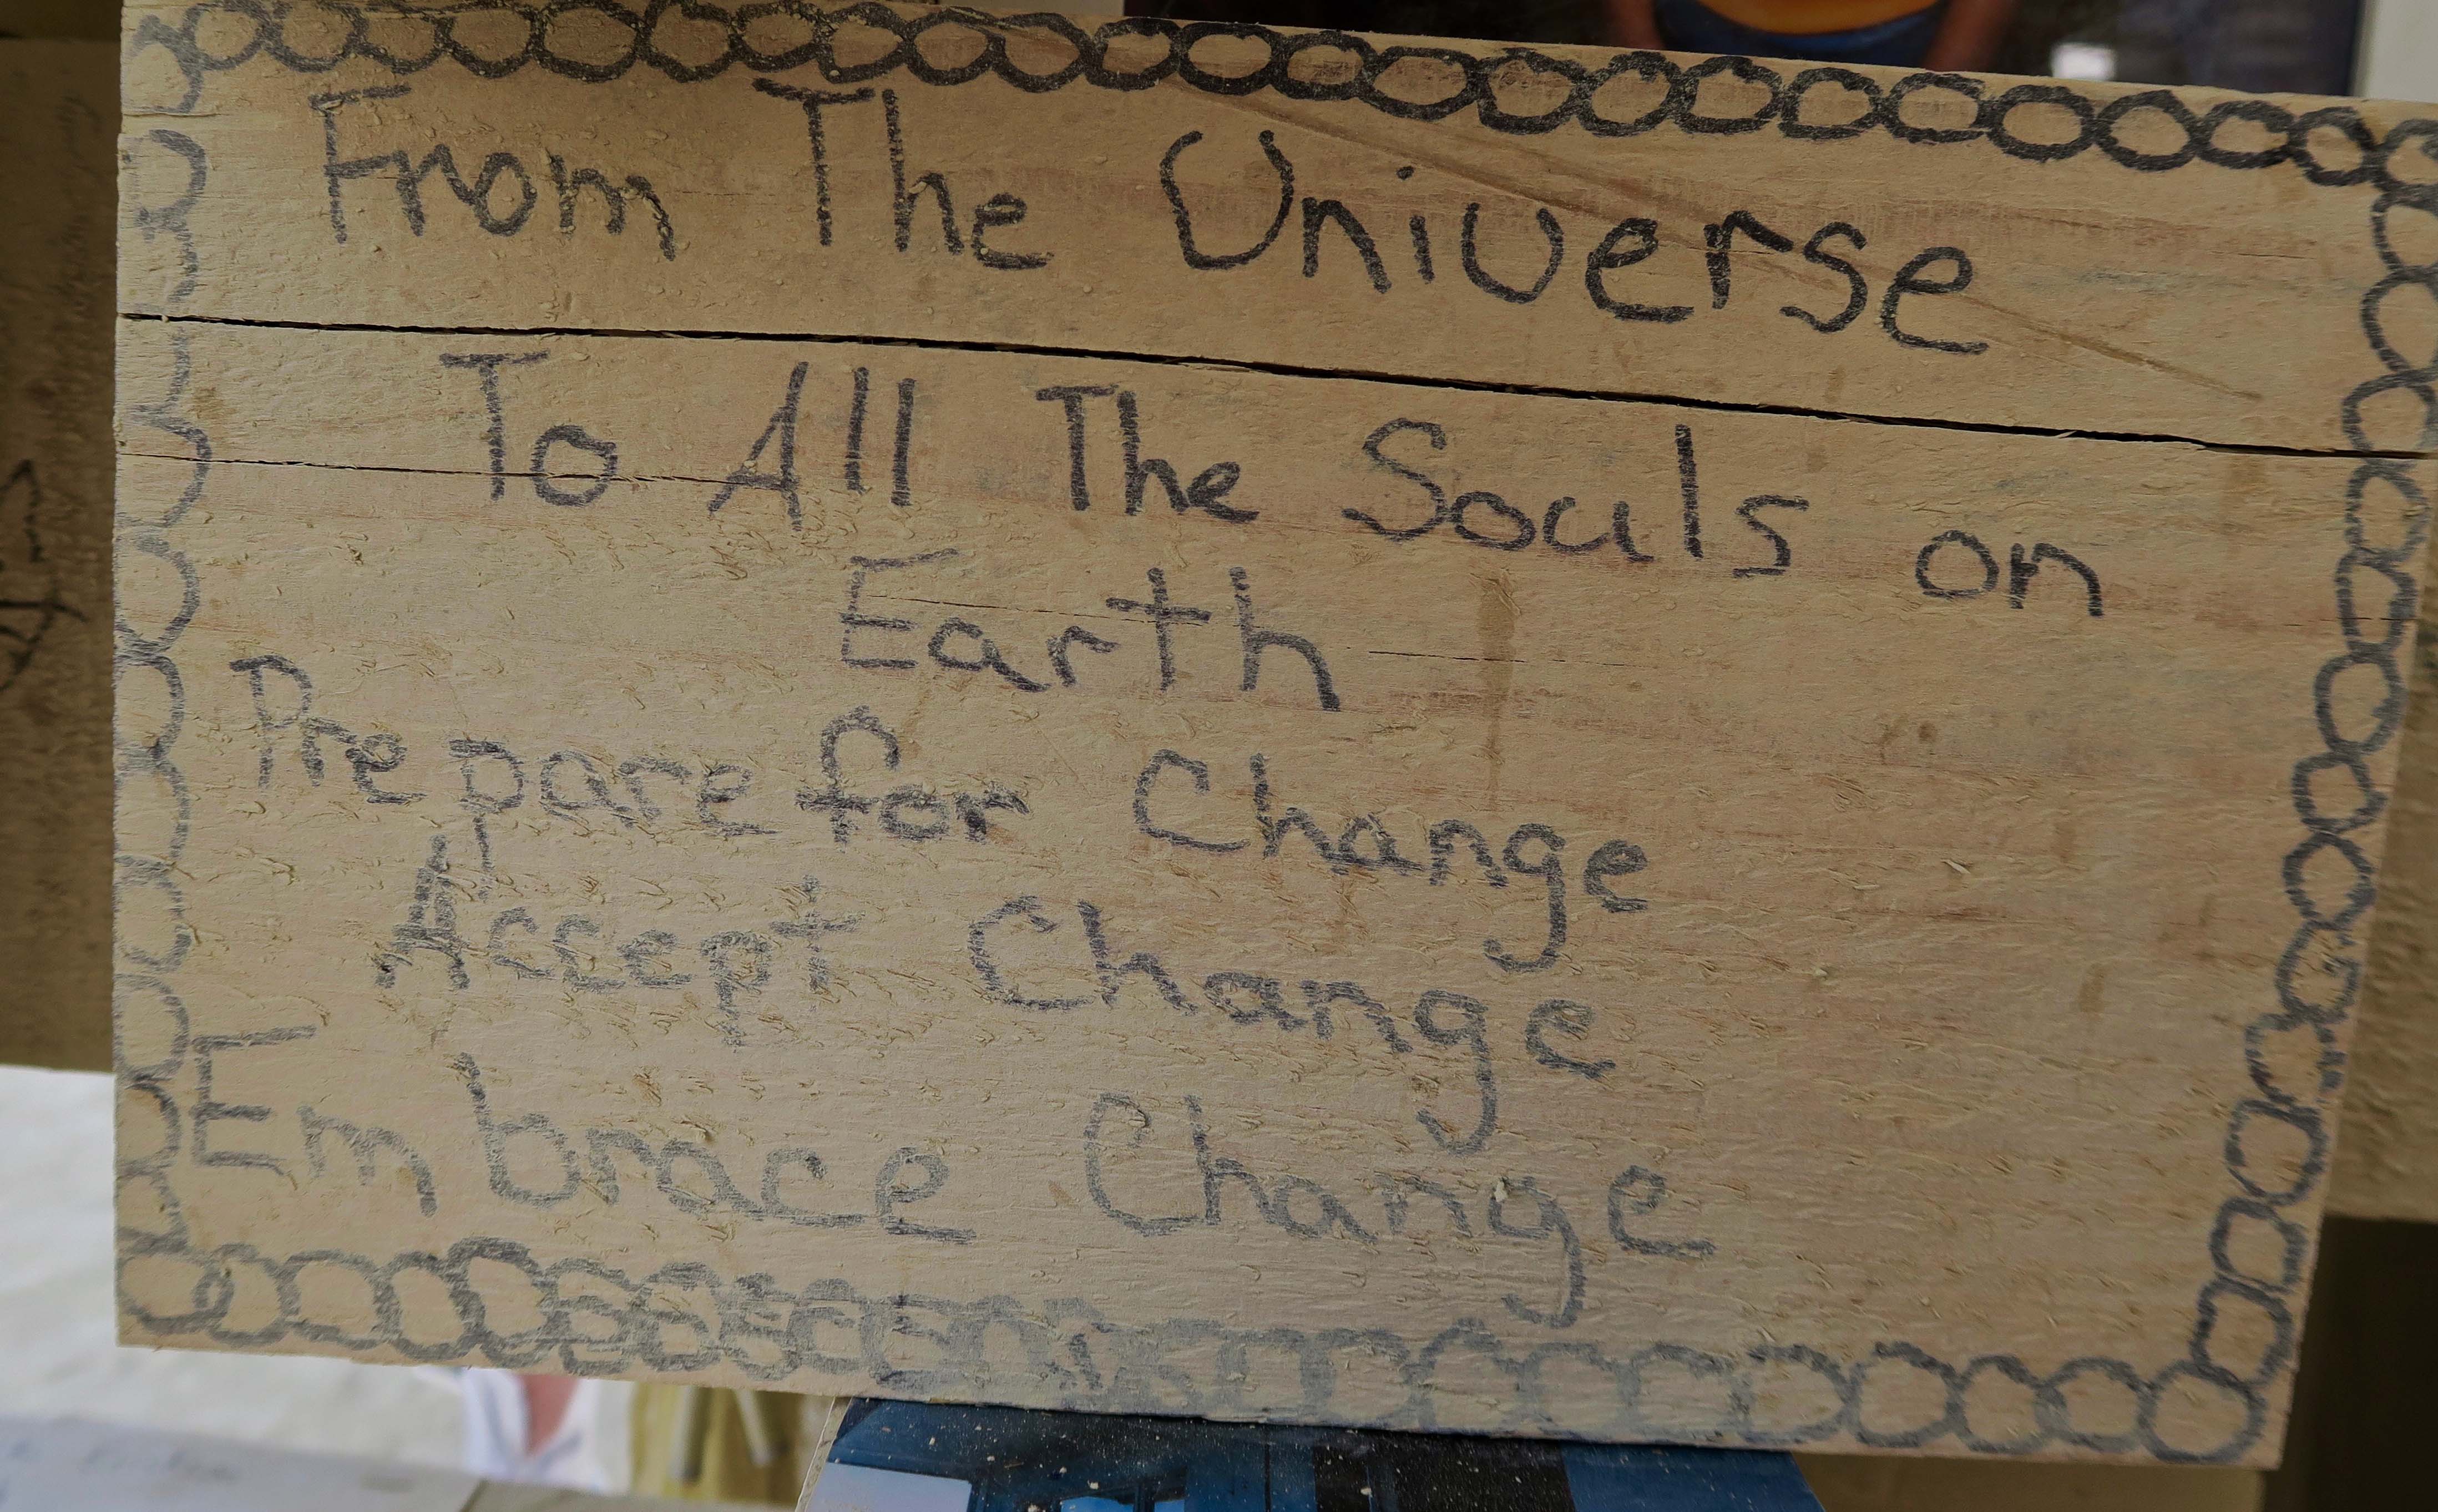 From The Universe
To All The Souls on
Earth
Prepare for Change
Accept Change
Embrace Change